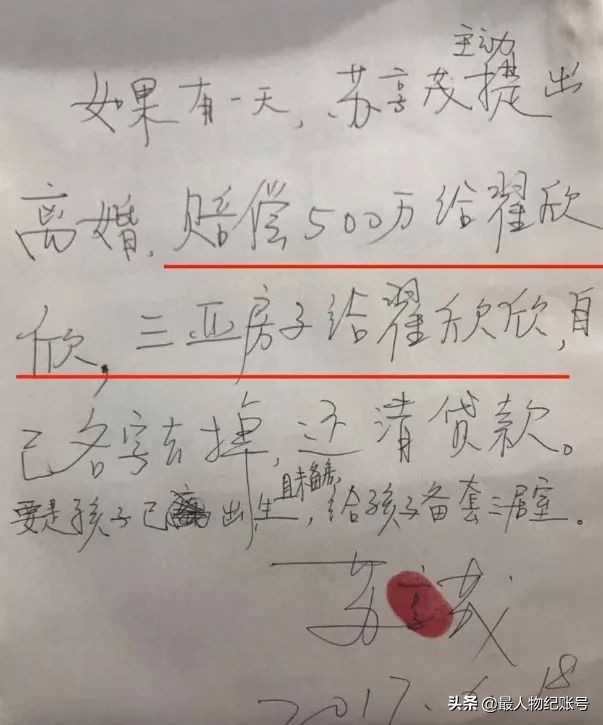 主动
如果有一天，苏享茂提出
离婚，赔偿500万给翟欣
欣，三亚房子给翟欣欣，自
己名字去掉，还清贷款。
且未备房
要是孩子已出生，给孩子备套三居室。
苏享茂
2017.
18
头条 @最人物纪账号